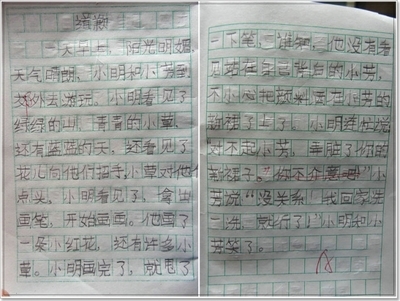 道歉
一天早上，阳光明媚，
天气晴朗，小明和小芳到
郊外去游玩，小明看见了
绿绿的山，青青的小草，
还有蓝蓝的天，还看见了
花儿向他们招手，小草对他们
点头，小明看见了，拿出
画笔，开始画画。他画了
一朵小红花，还有许多小
草。小明画完了，就甩了
一下笔，谁知，他没有看
见站在自己旁白的小芳，
不小心把颜料甩在小芳的
新裙子上了，小明连忙说
对不起小芳，弄脏了你的
新裙子，你不介意吧"小
芳说"没关系，我回家洗
一洗，就行了！"小明和小
芳笑了。
A